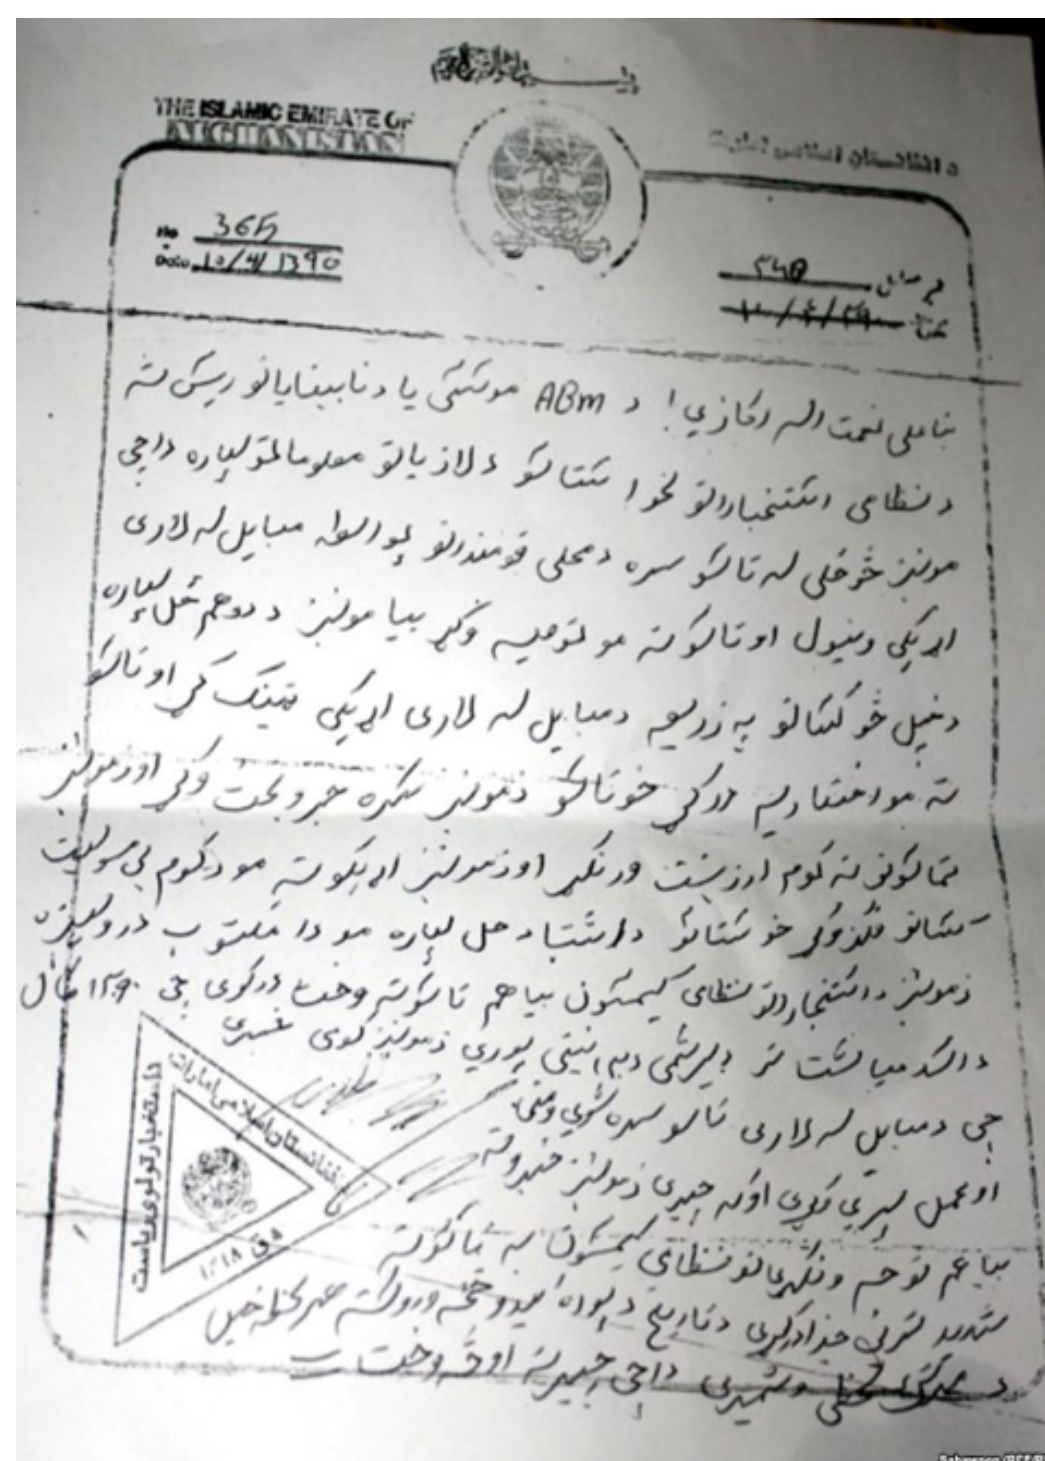 THE ISLAMIC EMIRATE OF
AFGHANISTAN
د افغانستان اسلامي امارت
No 365
Date 10/4/1390
ښاغلی نعمت الله اکازي! د ABM موسسی یا د نابینایانو ریس ته
د نظامی استخباراتو لخوا ستاسو د لازیاتو معلوماتو لپاره داچی
مونږ څوځلی له تاسو سره د محلی قومندانو په واسطه مبایل له لاری
اړیکی ونیول او تاسو ته مو توصیه وکړ بیا مونږ د دوهم ځل لپاره
د خپل څو کسانو په زریعه د مبایل له لاری اړیکی ټینګ کړ او تاسو
ته مو اخطاریه درکړ خو تاسو زمونږ سره جر و بحث وکړ او زمونږ
ته کوم ارزښت ورنکړ او زمونږ اړیکو ته مو د کوم بی مسولیت
کسانو فکر وکړ خو ستاسو د اشتباه حل لپاره مو دا مکتوب درولیږه
زمونږ د استخباراتو نظامی کمیسون بیا هم تاسو ته وخت درکوی چی ۱۳۹۰ کال
د اسد میاشت تر دیرشمی پوری زمونږ
چی د مبایل له لاری تاسو سره شوی ومنی
او عمل پری وکړی او که چیری زمونږ خبرو ته
بیا هم توجه ونکړی نو نظامی کمیسون به تاسو ته
شدید ترنی جزا درکړی د تاریخ د پوره کیدو څخه وروسته هر لحظه خپل
د مرګ لحظی وشمیری داچی چیرته او څه وخت
د افغانستان اسلامی امارات
د استخبارتو لوی ریاست
۱۴۱۸ ه ق